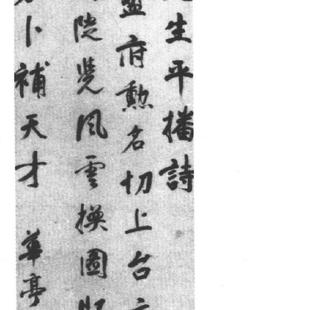 生平播詩
盟府勳名切上台
陡覺風雲換圖
卜補天才 華亭